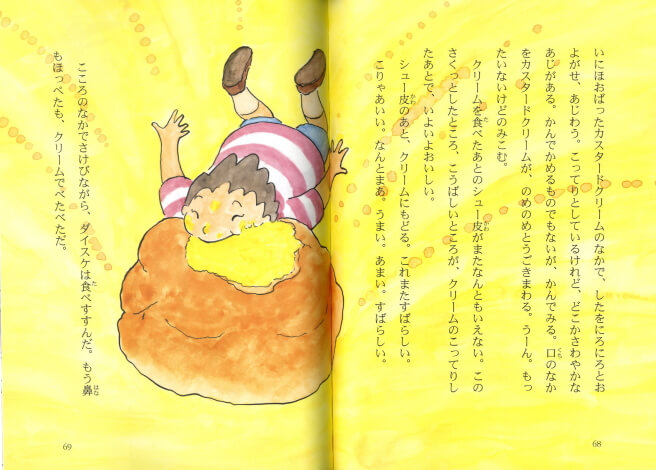 いにほおばったカスタードクリームのなかで、したをにろにろとお
よがせ、あじわう。こってりとしているけれど、どこかさわやかな
あじがある。かんでかめるものでもないが、かんでみる。口のなか
をカスタードクリームが、のめのめとうごきまわる。うーん。もっ
たいないけどのみこむ。
クリームを食べたあとのシュー皮がまたなんともいえない。この
さくっとしたところ、こうばしいところが、クリームのこってりし
たあとで、いよいよおいしい。
シュー皮のあと、クリームにもどる。これまたすばらしい。
こりゃあいい。なんとまあ。うまい。あまい。すばらしい。
68
こころのなかでさけびながら、ダイスケは食べすすんだ。もう鼻
もほっぺたも、クリームでべたべただ。
69